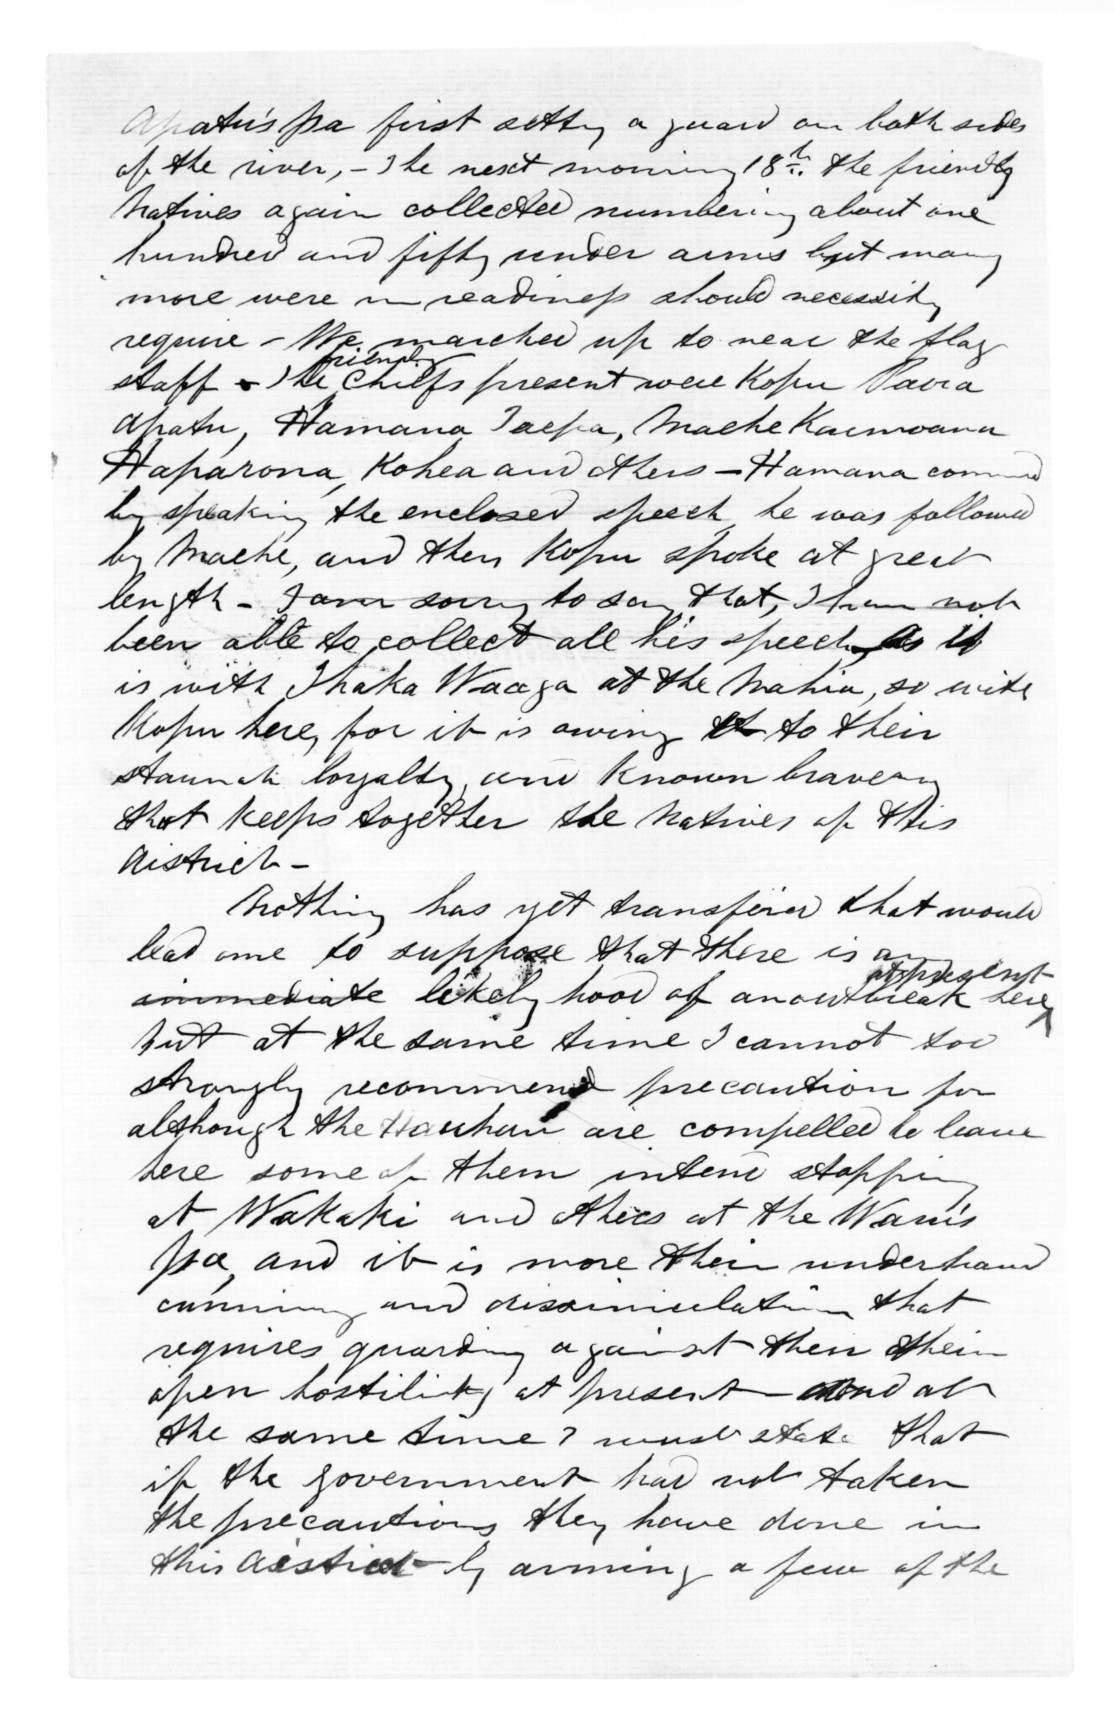 Apatu's Pa first setting a guard on both sides
of the river, - The next morning 18th. the friendly
Natives again collected numbering about one
hundred and fifty under arms but many
more were in readiness should necessity
require - We marched up to near the flag
staff - The friendly Chiefs present were Kopu Paora
Apatu, Hamana Taepa, Maehe Kaimoana
Haparona, Kohea and others - Hamana commd
by speaking the enclosed speech, he was followed
by Maehe, and then Kopu spoke at great
length - I am sorry to say, that, I have not
been able to collect all his speech, As it
is with Ihaka Waaga at the Mahia, so with
Kopu here, for it is owing to their
staunch loyalty, and known bravery
that keeps together the Natives of this
district -
Nothing has yet transpired that would
lead one to suppose that there is an
immediate likely hood of an outbreak here, at present
but at the same time I cannot too
strongly recommend precaution for
although the Hauhau are compelled to leave
here some of them intend stopping
at Wakaki and others at the
Pa, and it is more their underhand
cunning and dissimulation that
requires guarding against then their
open hostility at present - and at
the same time I must state that
if the government had not taken
the precautions they have done in
this district by arming a few of the